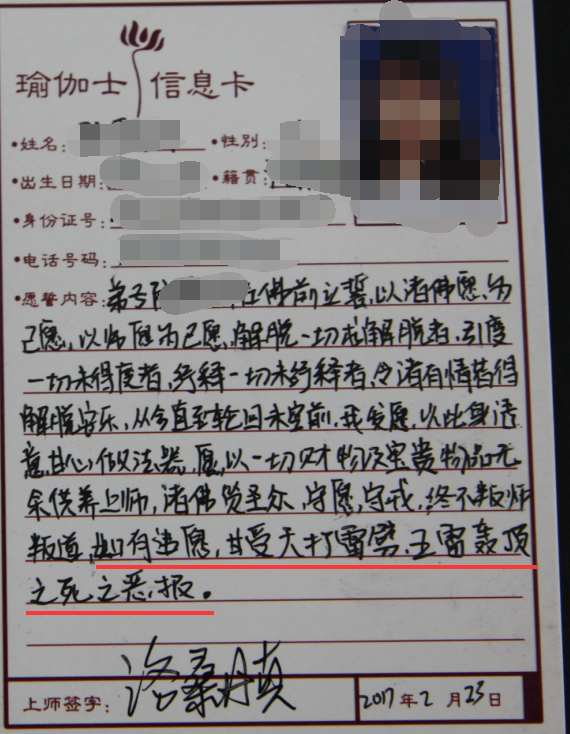 瑜伽士 信息卡
•姓名: •性别:
•出生日期: •籍贯:
•身份证号:
•电话号码:
•愿誓内容: 弟子 在佛前立誓,以诸佛愿,为
己愿,以师愿为己愿,解脱一切求解脱者,引度
一切未得度者, 一切未 者,令诸有情皆得
解脱安乐,从今直至轮回未空前,我发愿,以此身语
意,甘心做法器,愿,以一切财物及宝贵物品无
余供养上师,诸佛贤圣众,守愿,守戒,终不叛师
叛道,如有违愿,甘受天打雷劈,五雷轰顶
之死之恶报。
上师签字: 洛桑丹真 2017年2月23日